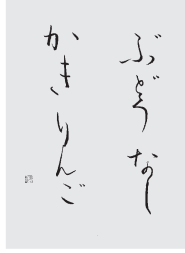 ぶどう なし
かき りんご